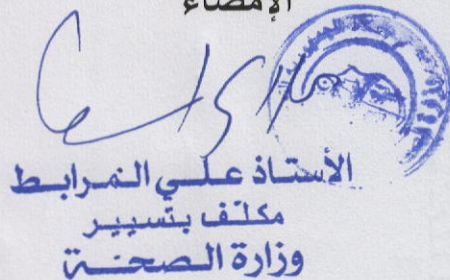 الإمضاء
الأستاذ علي المرابط
مكلف بتسيير
وزارة الصحة